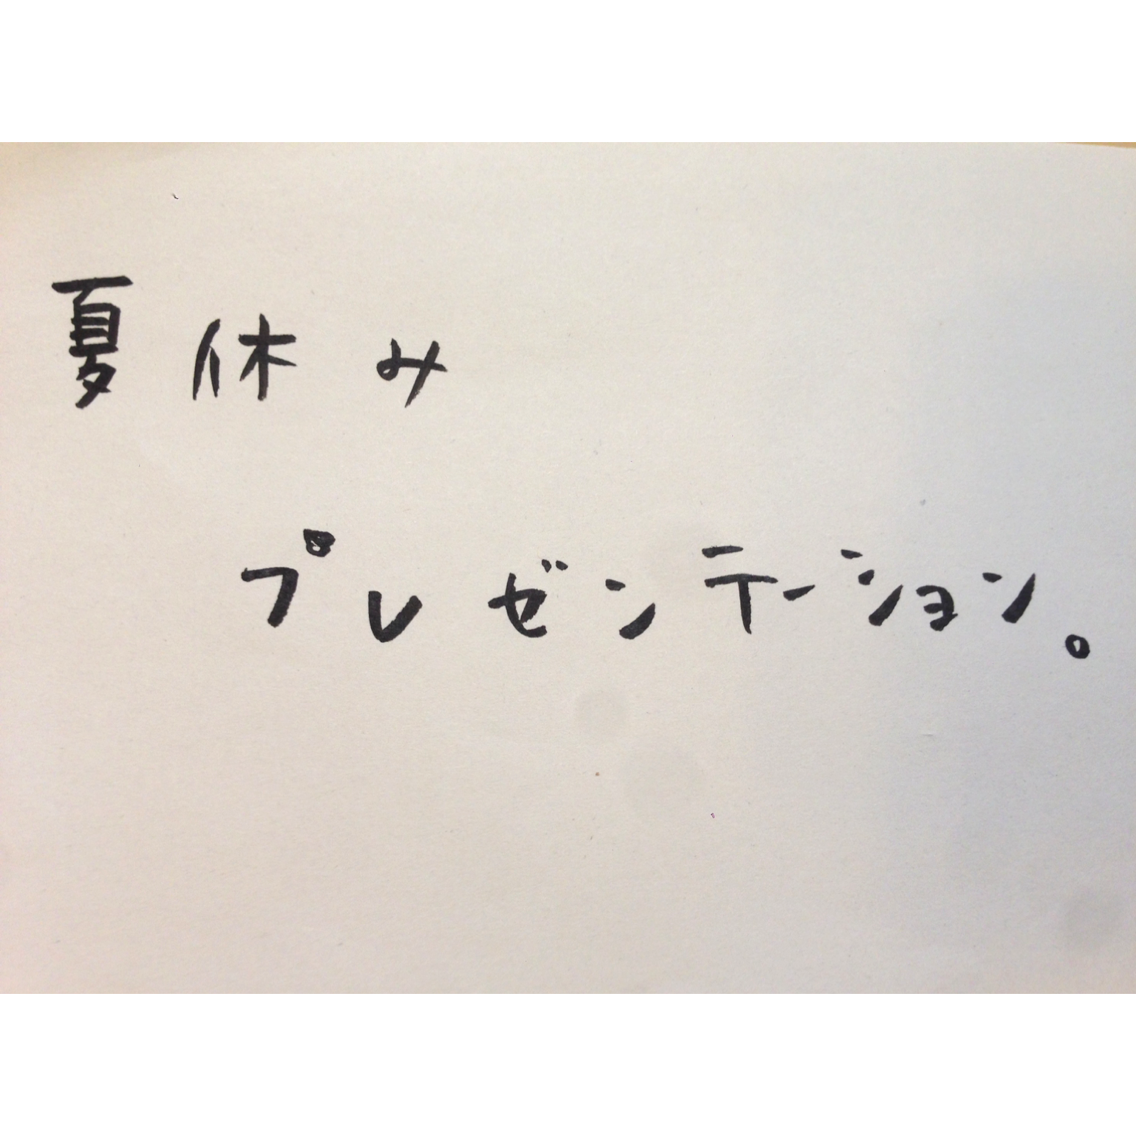 夏休み
プレゼンテーション。